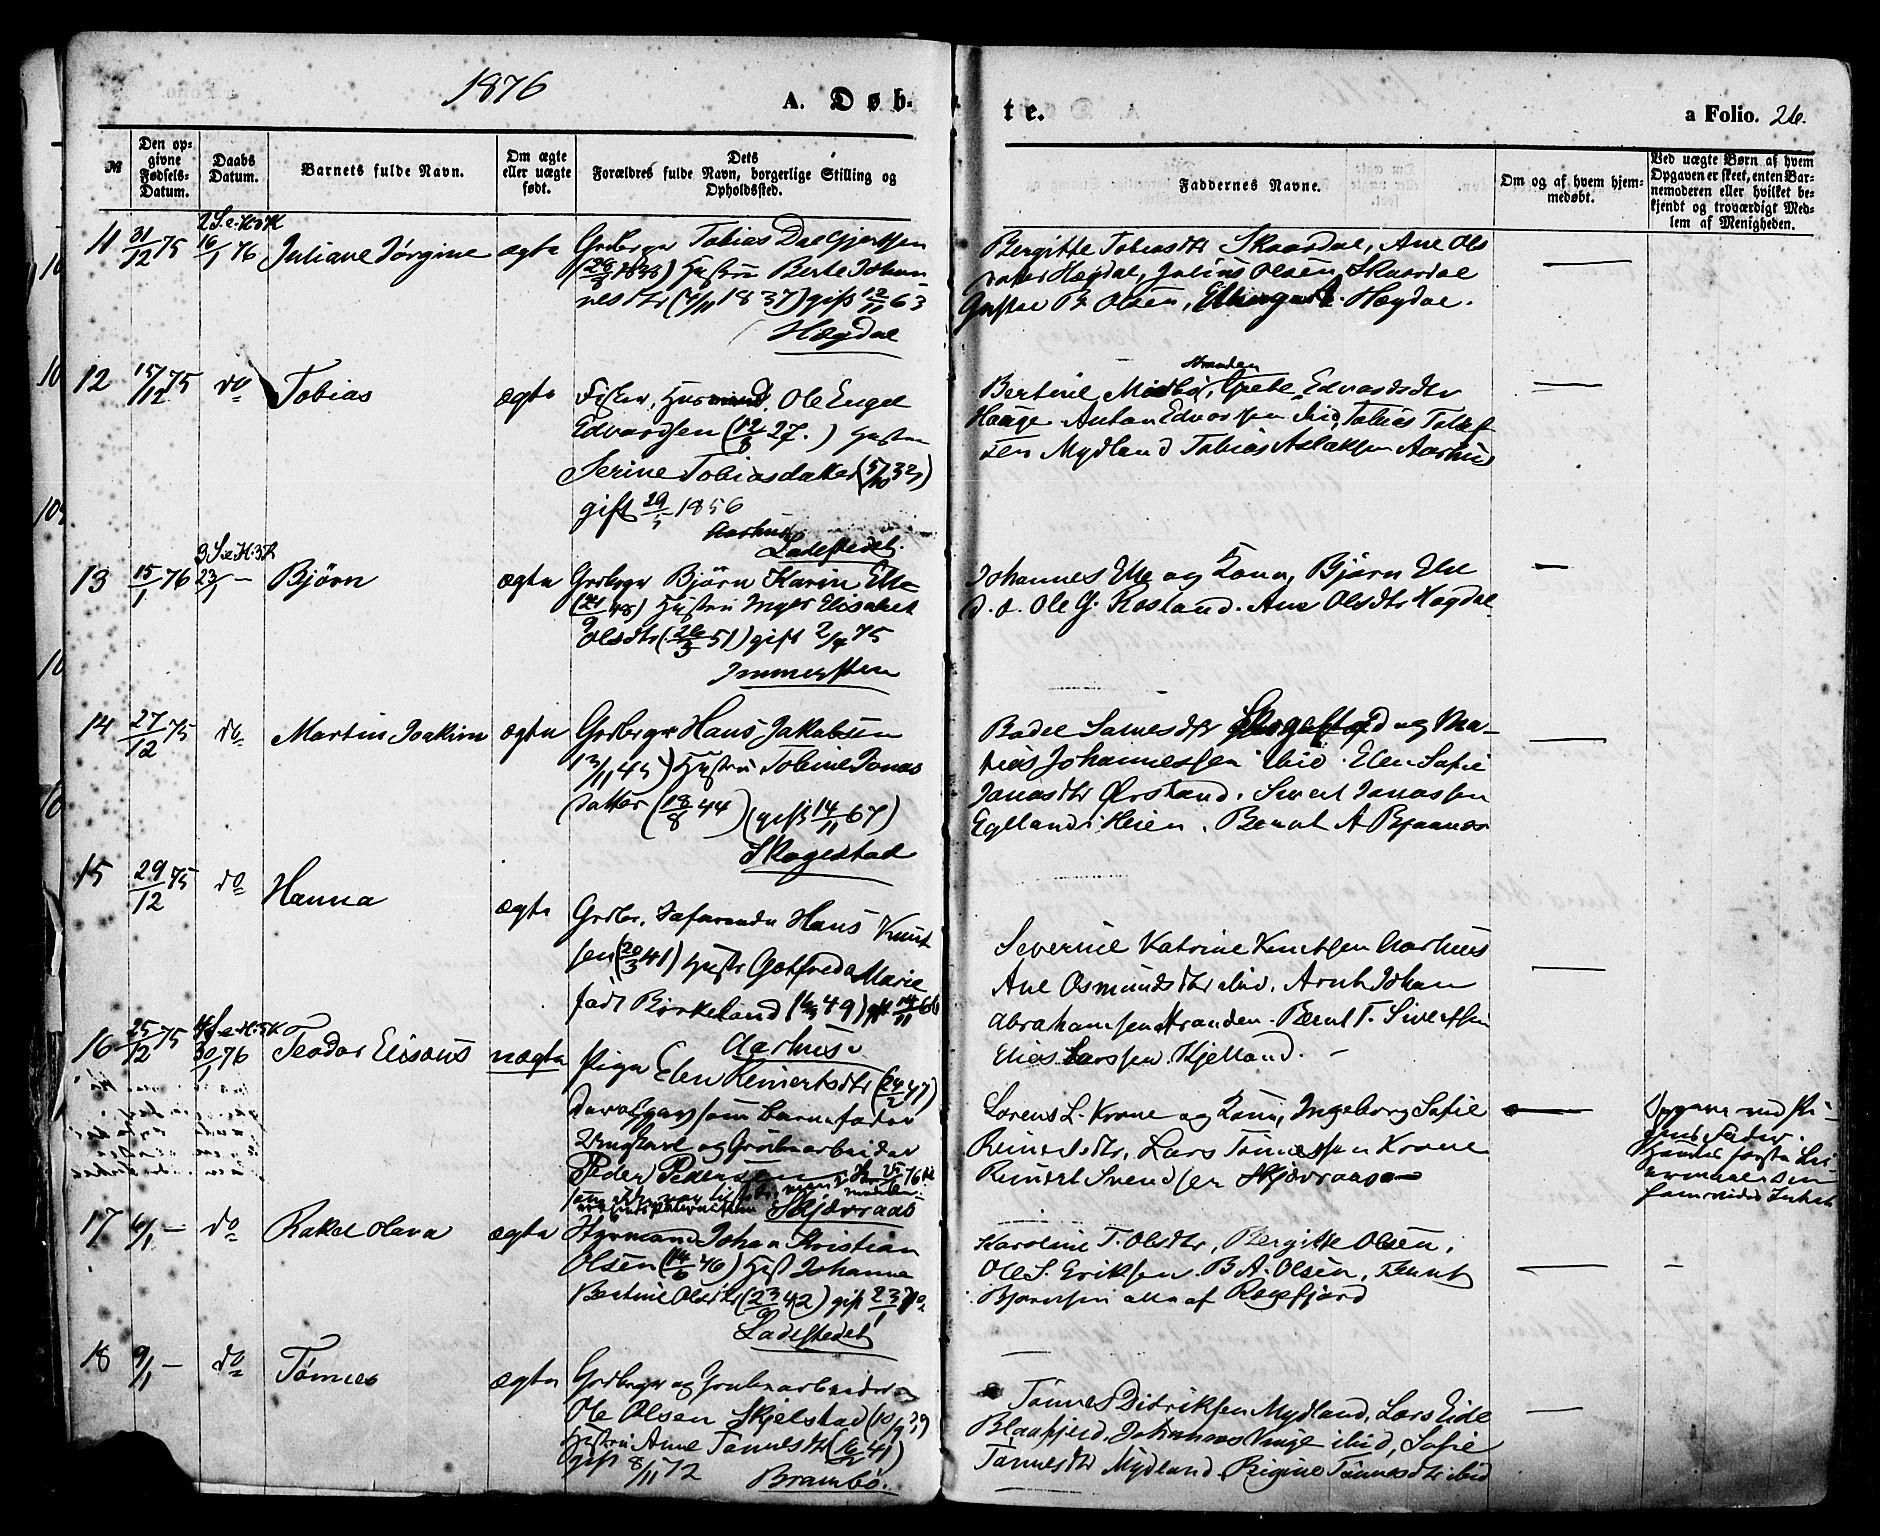 1876
A. Døb-
te.
a Folio. 26.
№
Den op-
givne
Fødsels-
Datum.
Daabs
Datum.
Barnets fulde Navn.
Om ægte
eller uægte
født.
Dets
Forældres fulde Navn, borgerlige Stilling og
Opholdssted.
Faddernes Navne.
Om og af hvem hjem-
medøbt.
Ved uægte Børn af hvem
Opgaven er skeet, enten Bar-
nemoderen eller hvilket be-
kjendt og troværdigt Med-
lem af Menigheden.
11 31/12 75 16/1 76 Juliane Jørgine ægte
Grdbrger Tobias Dal Gjertsen
1838) Hustru Berte Johan-
nesdtr 1837) gift 12/11 63
Hægdal
Bergitte Tobiasdtr Skaardal, Ane Ols
datter Hægdal, Julius Olsen, Skaardal
Gustav B. Olsen, Hægdal.
12 15/12 75 do Tobias ægte
Fisker, Husmand, Ole Engel
Edvardsen (12/8 27.) Hustru
Serine Tobiasdatter (5/10 32)
gift 1856
Aarhus
Ladestedet.
Stranden
Bertine Midbø, Grete Edvardsdtr
Haage Anton Edvardsen ibid, Tobias Tollef
sen Mydland Tobias Aslaksen Aarhus
13 15/1 76 3 S. e. H. 3 K 23/1 – Bjørn ægte
Grdbrger Bjørn Karin Elle
(21/9 48) Hustru Inger Elisabet
Olsdtr (26/3 51) gift 2/4 75
Immersten
Johannes Elle og Kone, Bjørn Elle
d. o. Ole G. Rosland. Ane Olsdtr Hægdal
14 27/12 75 do Martin Joakim ægte
Grdbrger Hans Jakobsen
13/11 45) Hustru Tobine Jonas
datter (18/8 44) (gift 14/11 67)
Skogestad
Bodel Samesdtr Skogestad og Ma-
tias Johannessen ibid. Elen Sofie
Jonasdtr Ørsland. Sivert Jonassen
Eglland i Heien. Bernt A Bjaanes
15 29/12 75 do Hanna ægte
Grdbr. Søfarende Hans Knut
sen (20/3 41) Hustr Gotfreda Marie
født Birkeland 49) gft 14/11 66
Aarhus
Severine Katrine Knutsen Aarhus
Ane Osmundsdtr ibid. Arnt Johan
Abrahamsen Stranden. Bernt T. Sivertsen
Elias Larssen Kjelland. –
16 25/12 75 4 S. e. H. 5 K 30/1 76 Teodor Elisæus uægte
Pige Elen Reinertsdtr (24/2 47)
der opgav som Barnefader
Ungkarl og Grubearbeider
Peder Pedersen
Skjævraas
Lorens L. Krone og Kone, Ingeborg Sofie
Reinertsdtr, Lars Tønnessen Krone
Reinert Svendsen Skjævraas
17 6/1 – do Rakel Olava ægte
Styrmand Johan Kristian
Olsen 46) Hust Johanne
Bertine Olsdtr (23/9 42) gift 23/1 70
Ladestedet
Karoline T. Olsdtr, Bergitte Olsen,
Ole S. Eriksen. B. A. Olsen, Bernt
Bjørnsen alle af Regefjord
18 9/1 – do Tønnes ægte
Grdbrger og Grubearbeider
Ole Olsen Skjelstad (10/9 39)
Hustru Anne Tønnesdtr 41)
gift 8/11 72
Brambø.
Tønnes Didriksen Mydland, Lars Eide
Blaafjeld, Johannes Vinje ibid, Sofie
Tønnesdtr Mydland Regine Tønnesdtr ibid